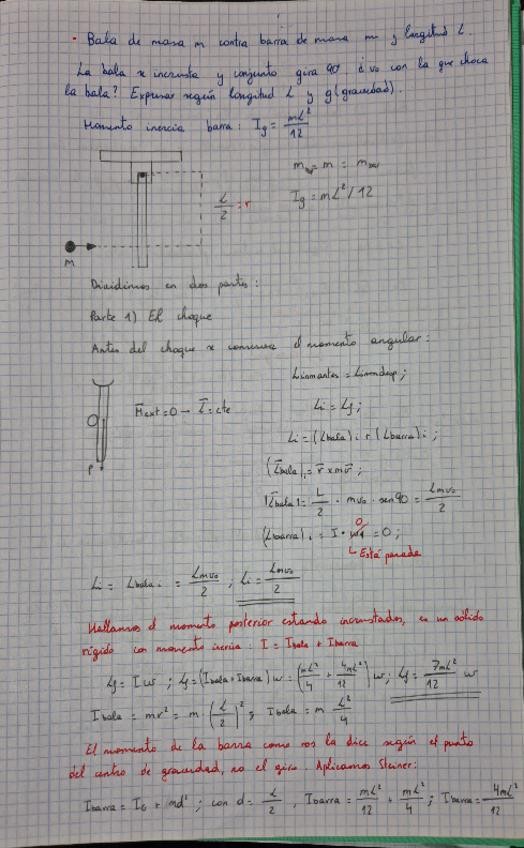 - Bala de masa m contra barra de masa m y longitud L.
La bala se incrusta y conjunto gira 90º. ¿ vo con la que choca
la bala? Expresar según longitud L y g (gravedad).
Momento inercia barra: Ig = mL²/12
m = m = m
L/2 = r
Ig = mL²/12
m
Dividimos en dos partes:
Parte 1) El choque
Antes del choque se conserva el momento angular:
Mext = 0 → L = cte
Li = Lf;
Li = (Lbala)i + (Lbarra)i;
(Lbala)i = r x mv;
|Lbala| = L/2 · mvo · sen90 = Lmvo/2
(Lbarra)i = I · w = 0;
0
Está parada
Li = Lbala i = Lmvo/2 ; Li = Lmvo/2
Hallamos el momento posterior estando incrustados, es un sólido
rígido con momento inercia: I = Ibala + Ibarra
Lf = Iw ; Lf = (Ibala + Ibarra) w = (mL²/4 + 4mL²/12) w; Lf = 7mL²/12 w
Ibala = mr² = m (L/2)²; Ibala = m L²/4
El momento de la barra como nos la dice según el punto
del centro de gravedad, no el giro. Aplicamos Steiner:
Ibarra = IG + md² ; con d = L/2 , Ibarra = mL²/12 + mL²/4 ; Ibarra = 4mL²/12